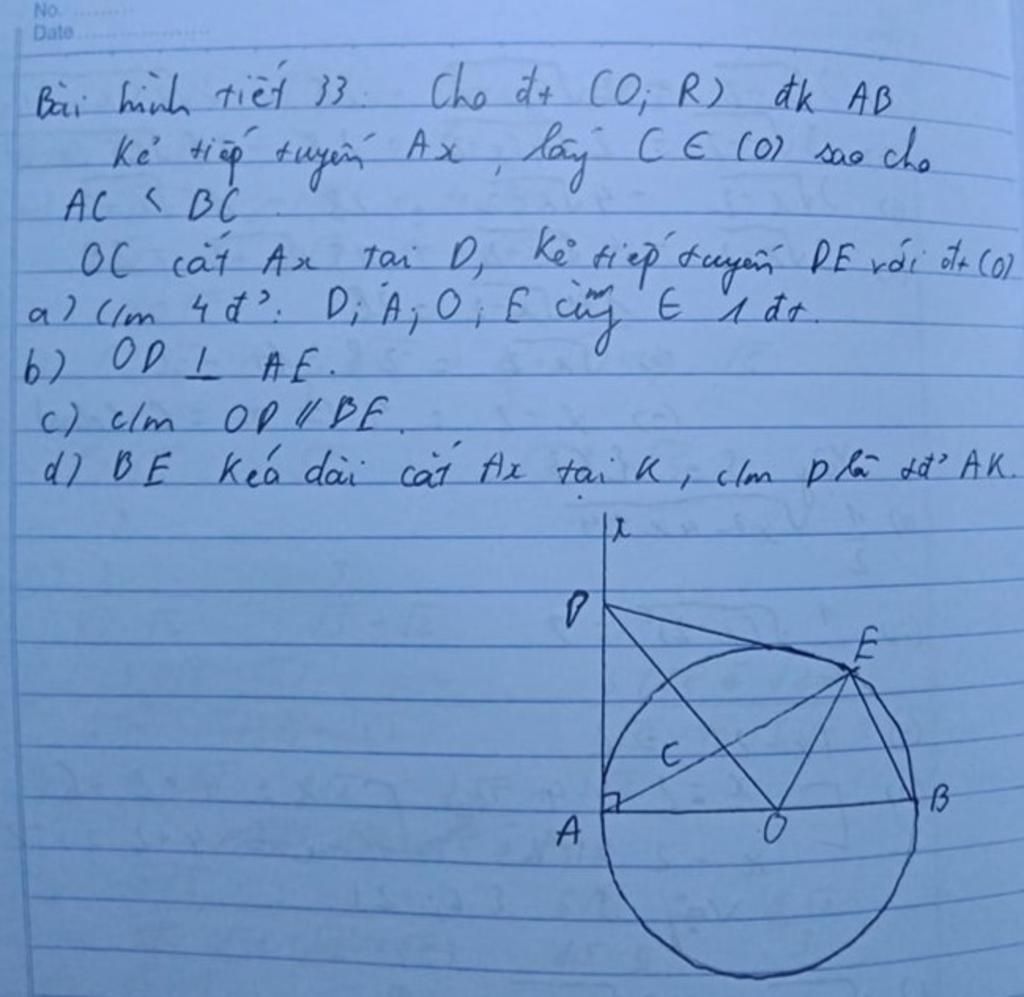 No. ..........
Date ......................
Bài hình tiết 33. Cho đt (O; R) đk AB
Kẻ tiếp tuyến Ax, lấy C ∈ (O) sao cho
AC < BC
OC cắt Ax tại D, kẻ tiếp tuyến DE với đt (O)
a) C/m 4 đ': D; A; O; E cùng ∈ 1 đt.
b) OD ⊥ AE.
c) c/m OD // BE.
d) BE kéo dài cắt Ax tại K, c/m D là tđ' AK.
x
D
E
C
A
O
B